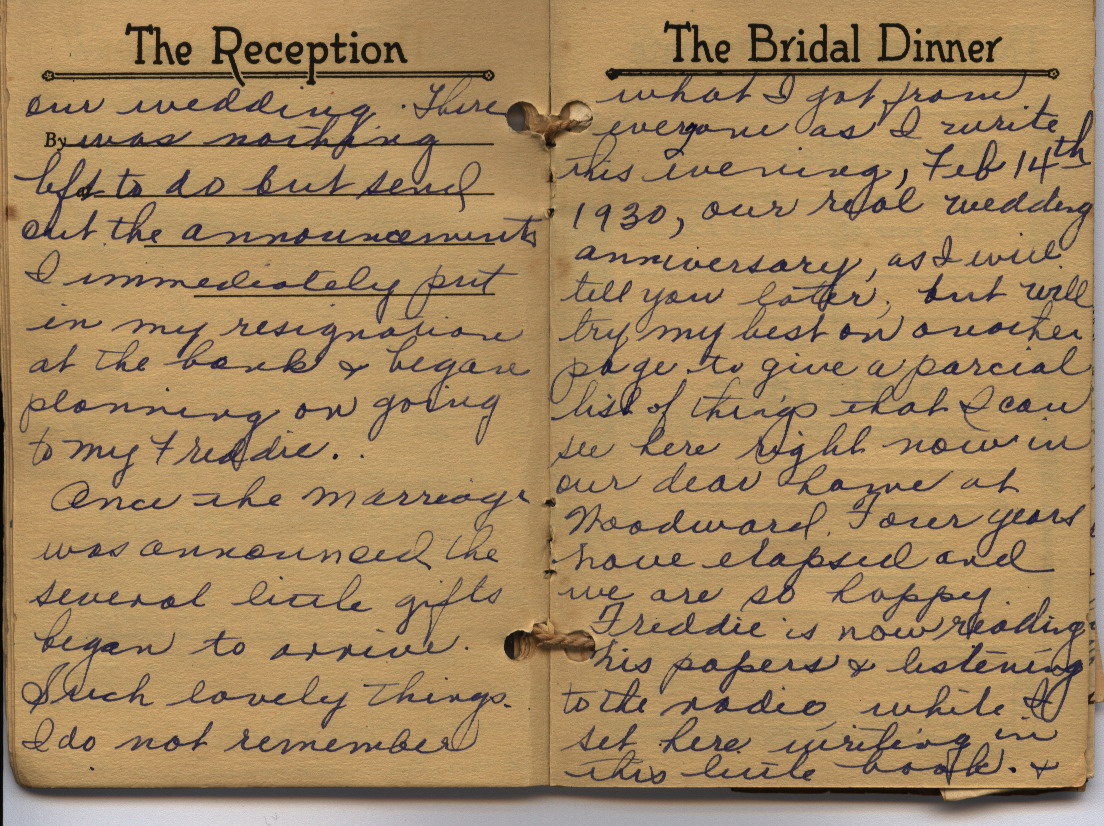 The Reception
our wedding. There
By was nothing
left to do but send
out the announcements
I immediately put
in my resignation
at the bank & began
planning on going
to my Freddie..
Once the marriage
was announced the
several little gifts
began to arrive.
Such lovely things.
I do not remember
The Bridal Dinner
what I got from
everyone as I write
this evening, Feb 14th
1930, our real wedding
anniversary, as I will
tell you later, but will
try my best on another
page to give a parcial
list of things that I can
see here right now in
our dear home at
Woodward. Four years
have elapsed and
we are so happy.
Freddie is now reading
his papers & listening
to the radio while I
set here writing in
this little book. &